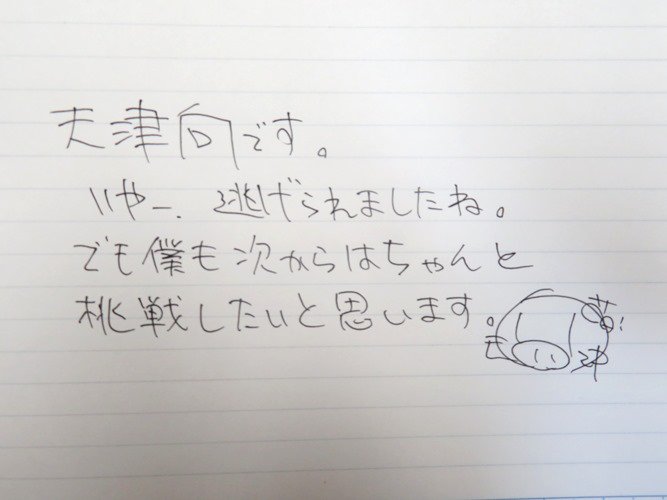 天津向です。
いやー、逃げられましたね。
でも僕も次からはちゃんと
挑戦したいと思います。